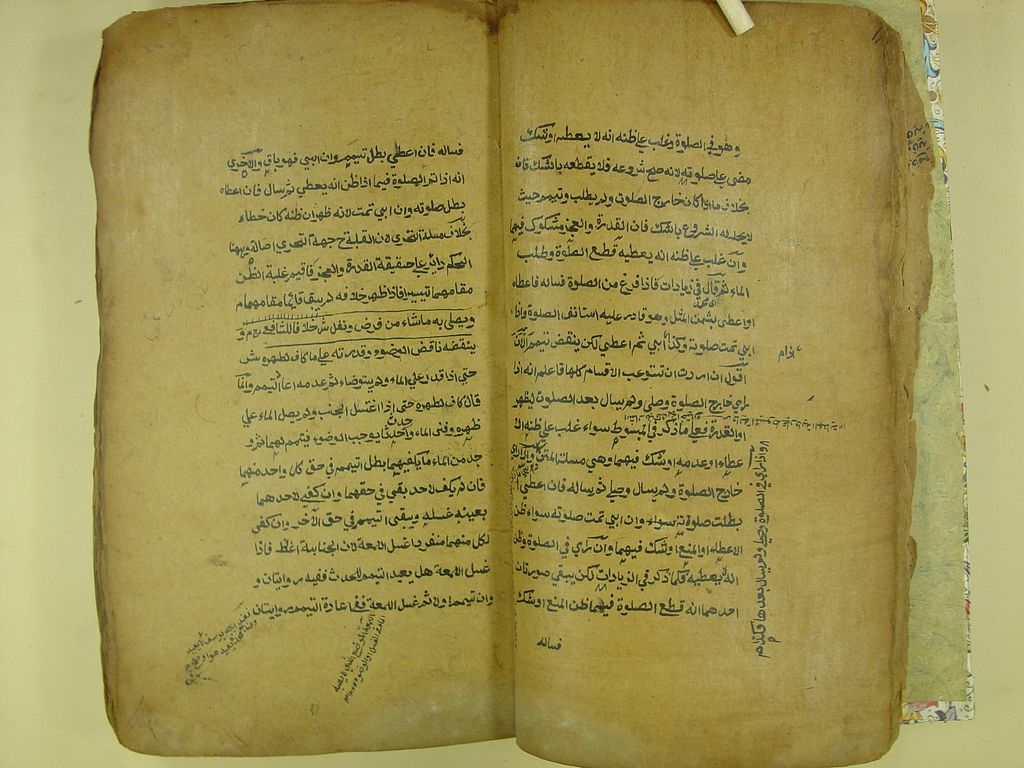 وهو في الصلوة وغلب على ظنه انه لا يعطيه او شك
مضى على صلوته لانه صح شروعه فلا يقطعه بالشك فان
بخلاف ما اذا كان خارج الصلوة ولم يطلب وتيمم حيث
لا يحل له الشروع بالشك فان القدرة والعجز مشكوك فيهما
وان غلب على ظنه انه يعطيه قطع الصلوة وطلب
الماء ثم قال في زيادات فاذا فرغ من الصلوة فساله فاعطاه
او اعطى بثمن المثل وهو قادر عليه استانف الصلوة واذا
ابى تمت صلوته وكذا اذا ابى ثم اعطى لكن ينقض تيممه الآن
اقول ان اردت ان تستوعب الاقسام كلها فاعلم انه اذا
راى خارج الصلوة وصلى ولم يسال بعد الصلوة ليظهر
او القدرة فعلى ما ذكر في المبسوط سواء غلب على ظنه الا
عطاء او عدمه او شك فيهما وهي مسئلة المتن واذا راى
خارج الصلوة ولم يسال وصلى ثم ساله فان اعطى
بطلت صلوته سواء وان ابى تمت صلوته سواء ظن
الاعطاء او المنع او شك فيهما وان راى في الصلوة وظن
انه لا يعطيه فكما ذكر في الزيادات لكن يبقى صورتان
احدهما انه قطع الصلوة فيما ظن المنع او شك
فساله
واذا راى في الصلوة وصلى ولم يسال بعدها فكذا
فساله فان اعطى بطل تيممه وان ابى فهو باق والاخرى
انه اذا تم الصلوة فيما اذا ظن انه يعطي ثم سال فان اعطاه
بطل صلوته وان ابى تمت لانه ظهر ان ظنه كان خطاء
بخلاف مسئلة التحرى لان القبلة ح جهة التحرى اصالة وههنا
الحكم دائر على حقيقة القدرة والعجز فاقيم غلبة الظن
مقامهما تيسيرا فاذا ظهر خلافه لم يبق قائما مقامهما م
ويصلى به ما شاء من فرض ونفل ش خلافا للشافعي رح م و
ينقضه ناقض الوضوء وقدرته على ماء كاف لطهره ش
حتى اذا قدر على الماء ولم يتوضاء ثم عدمه اعاد التيمم وانما
قال كاف لطهره حتى اذا اغتسل الجنب ولم يصل الماء على
ظهره وفنى الماء واحدث حدثا يوجب الوضوء يتيمم لهما ثم و
جد من الماء ما يكفيهما بطل تيممه في حق كل واحد منهما
فان لم يكف لاحد بقي في حقهما وان كفى لاحدهما
بعينه غسله ويبقى التيمم في حق الآخر وان كفى
لكل منهما منفردا غسل اللمعة لان الجنابة اغلظ فاذا
غسل اللمعة هل يعيد التيمم للحدث ففيه روايتان و
وان تيمم اولا ثم غسل اللمعة ففي اعادة التيمم روايتان